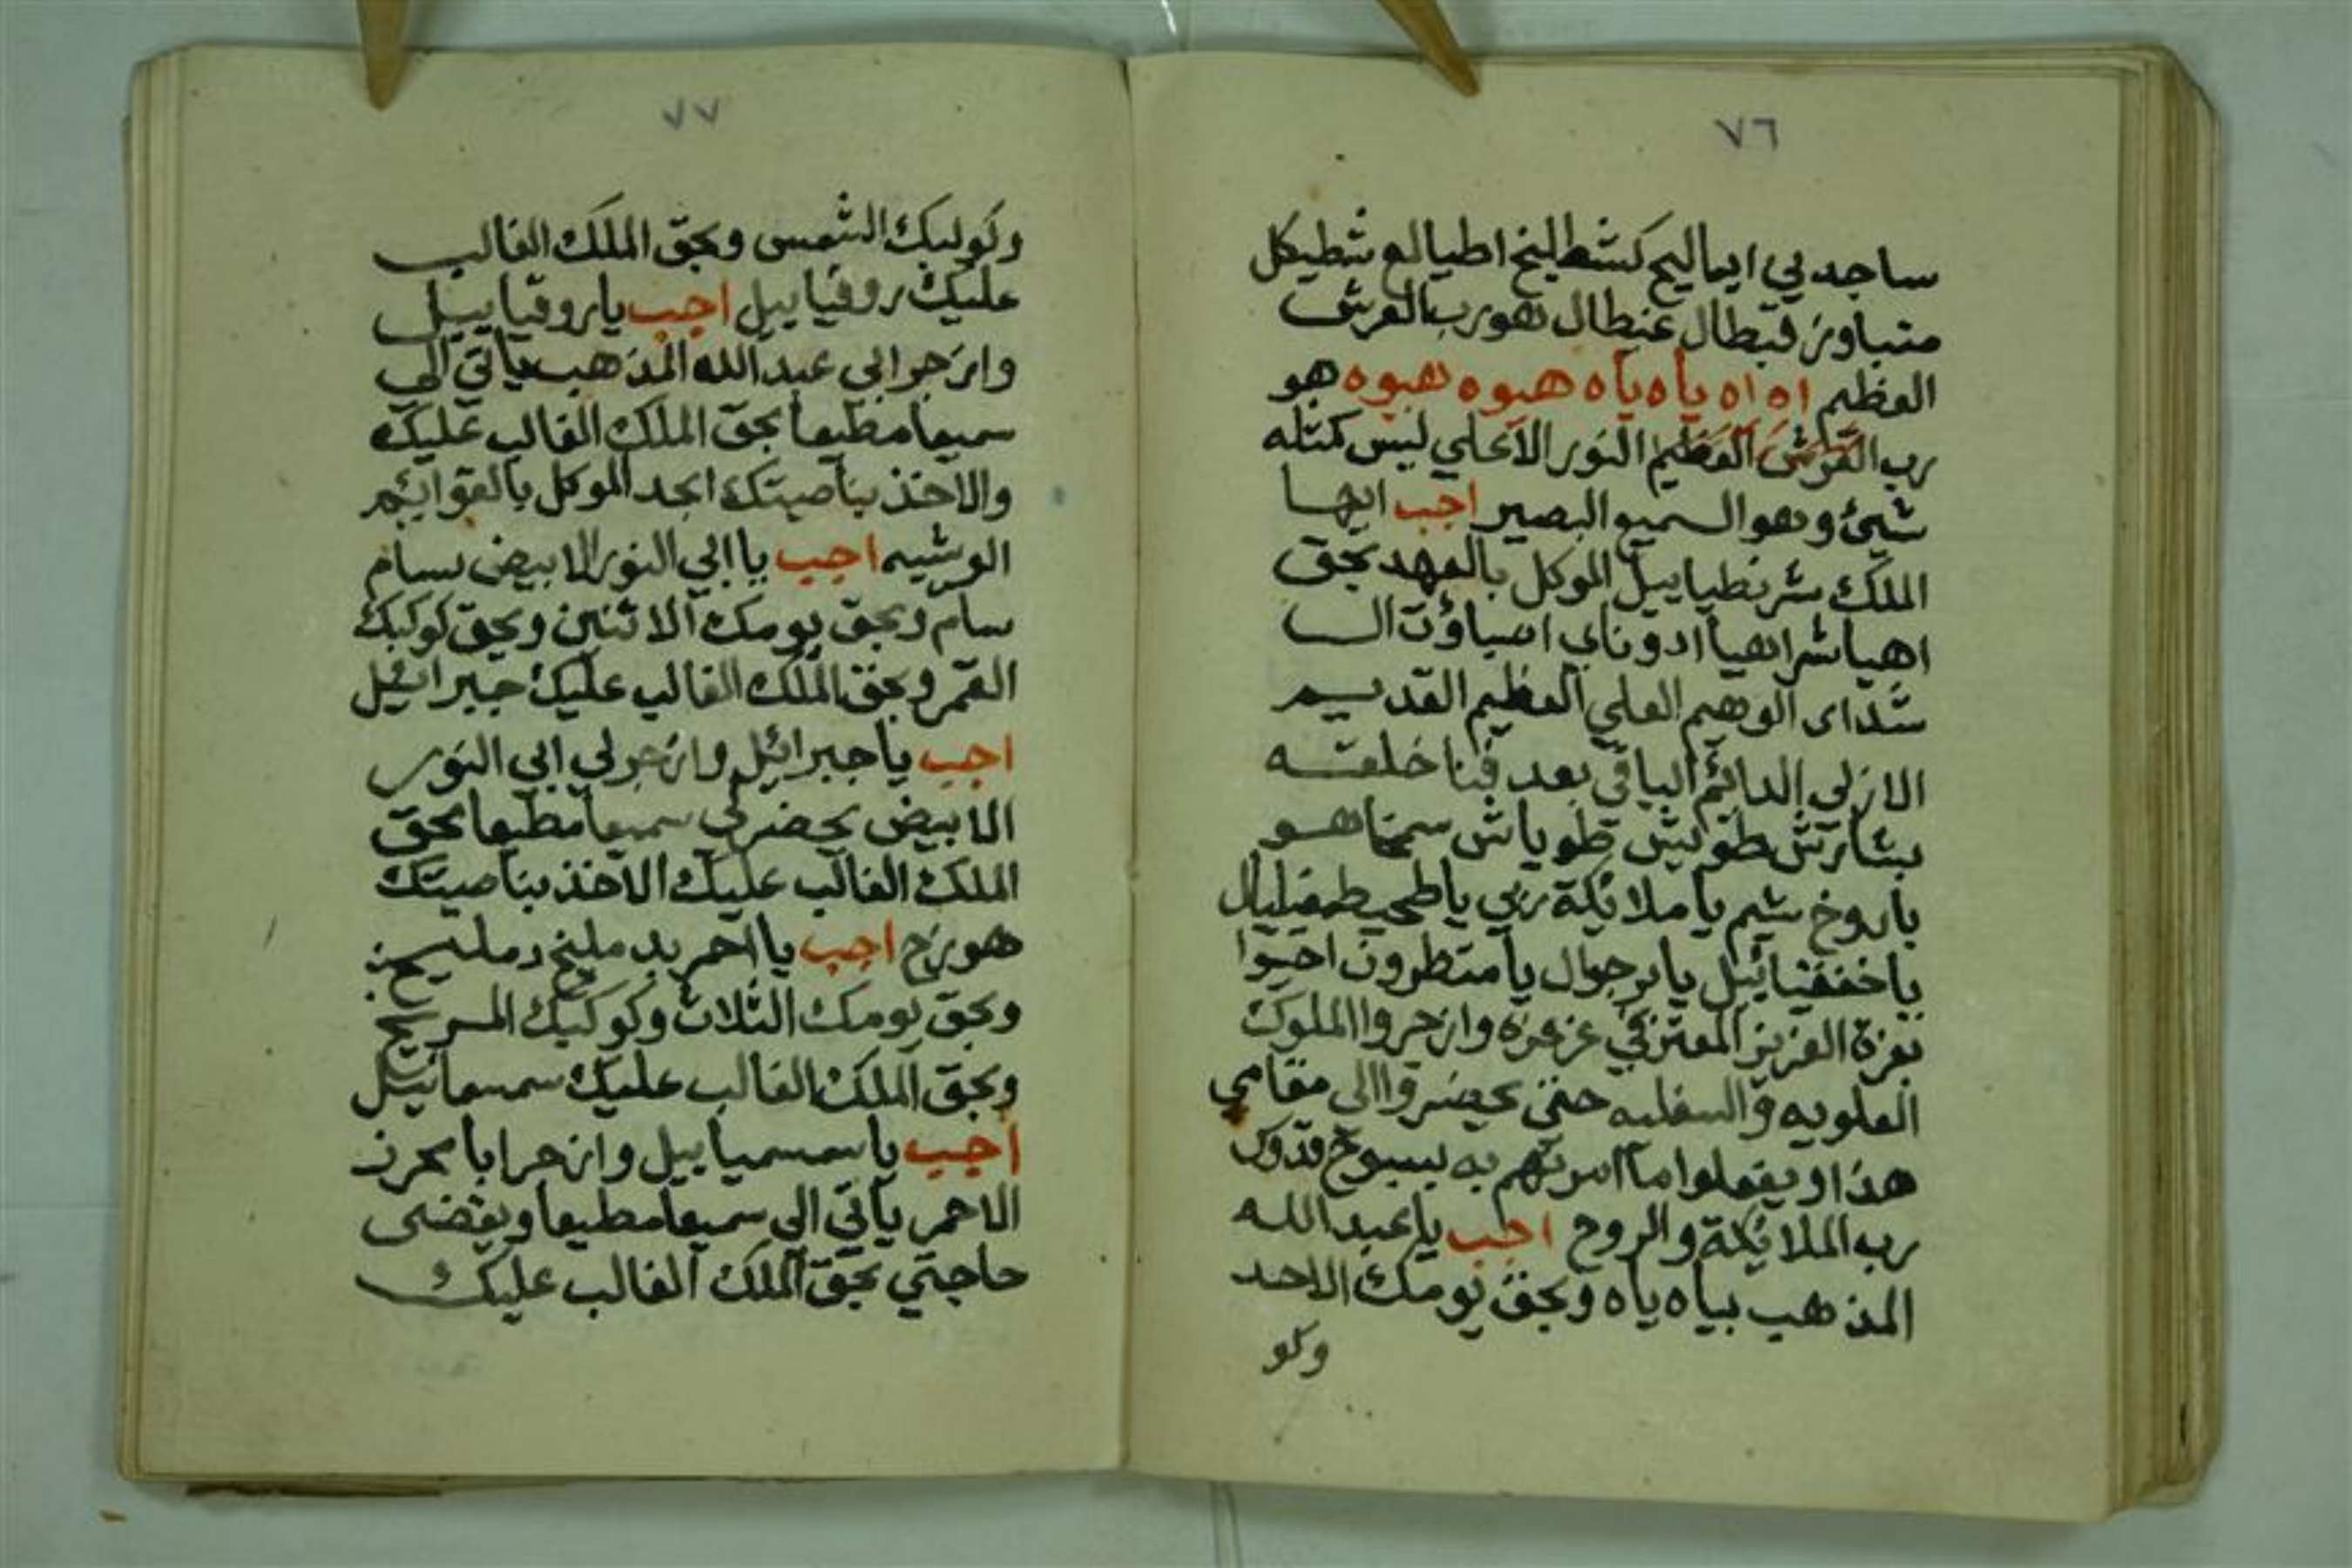 ٧٦
ساجد بي ايماليخ كشطليخ اطيالع شطيكل
متباوز قبطال عنطال هو رب العرش
العظيم اه اه ياه ياه هبوه هبوه هو
رب العرش العظيم النور الاعلي ليس كمثله
شيئ وهو السميع البصير اجب ايها
الملك شرنطياييل الموكل بالعهد بحق
اهيا شراهيا ادوناي اصباؤت ال
شداى الوهيم العلي العظيم القديم
الازلي الدائم الباقي بعد فنا خلقه
بشارش طوليش طوياش سمتاهو
باروخ شيم يا ملائكة ربي يا طحيطمغيليال
يا خففيائيل يا برجوال يا متطرون اجيبوا
بعزة العزيز المعتز في عز عزه وازجروا الملوك
العلويه والسفليه حتي يحضروا الى مقامي
هذا ويفعلوا ما امرتهم به بسبوح قدوس
رب الملائكة والروح اجب يا عبد الله
المذهب بياه ياه وبحق يومك الاحد
وكو
٧٧
وكوكبك الشمس وبحق الملك الغالب
عليك روقياييل اجب يا روقياييل
وازجر ابي عبد الله المذهب ياتي الي
سميعا مطيعا بحق الملك الغالب عليك
والاخذ بناصيتك ابجد الموكل بالقوائم
الوشيه اجب يا ابي النور الابيض بسام
سام وبحق يومك الاثنين وبحق كوكبك
القمر وبحق الملك الغالب عليك جبرائيل
اجب يا جبرائيل وازجر لي ابي النور
الابيض يحضر لي سميعا مطيعا بحق
الملك الغالب عليك الاخذ بناصيتك
هوزح اجب يا احمر بدمليخ دمليخ
وبحق يومك الثلاث وكوكبك المريخ
وبحق الملك الغالب عليك سمسمائيل
اجب يا سمسمياييل وازجر ابا محرز
الاحمر ياتي الى سميعا مطيعا ويقضى
حاجتي بحق الملك الغالب عليك